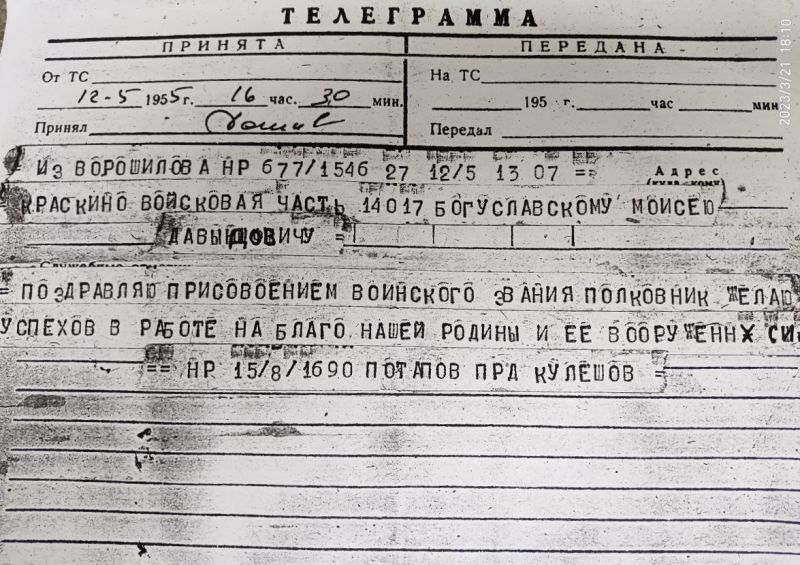 ТЕЛЕГРАММА
ПРИНЯТА
ПЕРЕДАНА
От ТС
На ТС
12-5 1955 г. 16 час. 30 мин.
195 г. час мин
Принял
Передал
ИЗ ВОРОШИЛОВА НР 677/1546 27 12/5 13 07 ==
Адрес
КРАСКИНО ВОЙСКОВАЯ ЧАСТЬ 14017 БОГУСЛАВСКОМУ МОИСЕЮ
ДАВЫДОВИЧУ =
= ПОЗДРАВЛЯЮ ПРИСОВОЕНИЕМ ВОИНСКОГО ЗВАНИЯ ПОЛКОВНИК ЖЕЛАЮ
УСПЕХОВ В РАБОТЕ НА БЛАГО НАШЕЙ РОДИНЫ И ЕЕ ВООРУЖЕННХ СИ
== НР 15/8/1690 ПОТАПОВ ПРД КУЛЕШОВ =
2023/3/21 18:10